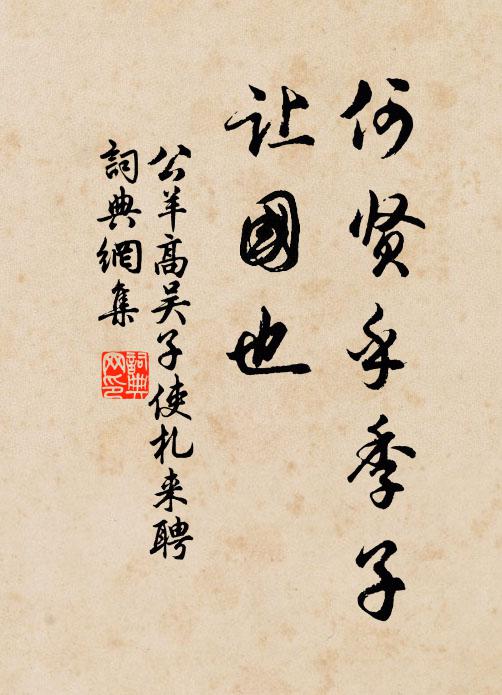 何贤乎季子
让國也
公羊高吴子使札来聘
詞典網集
詞典网印